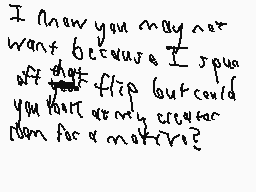 I know you may not
want because I spun
off that flip but could
you look at my creator
room for a motive?